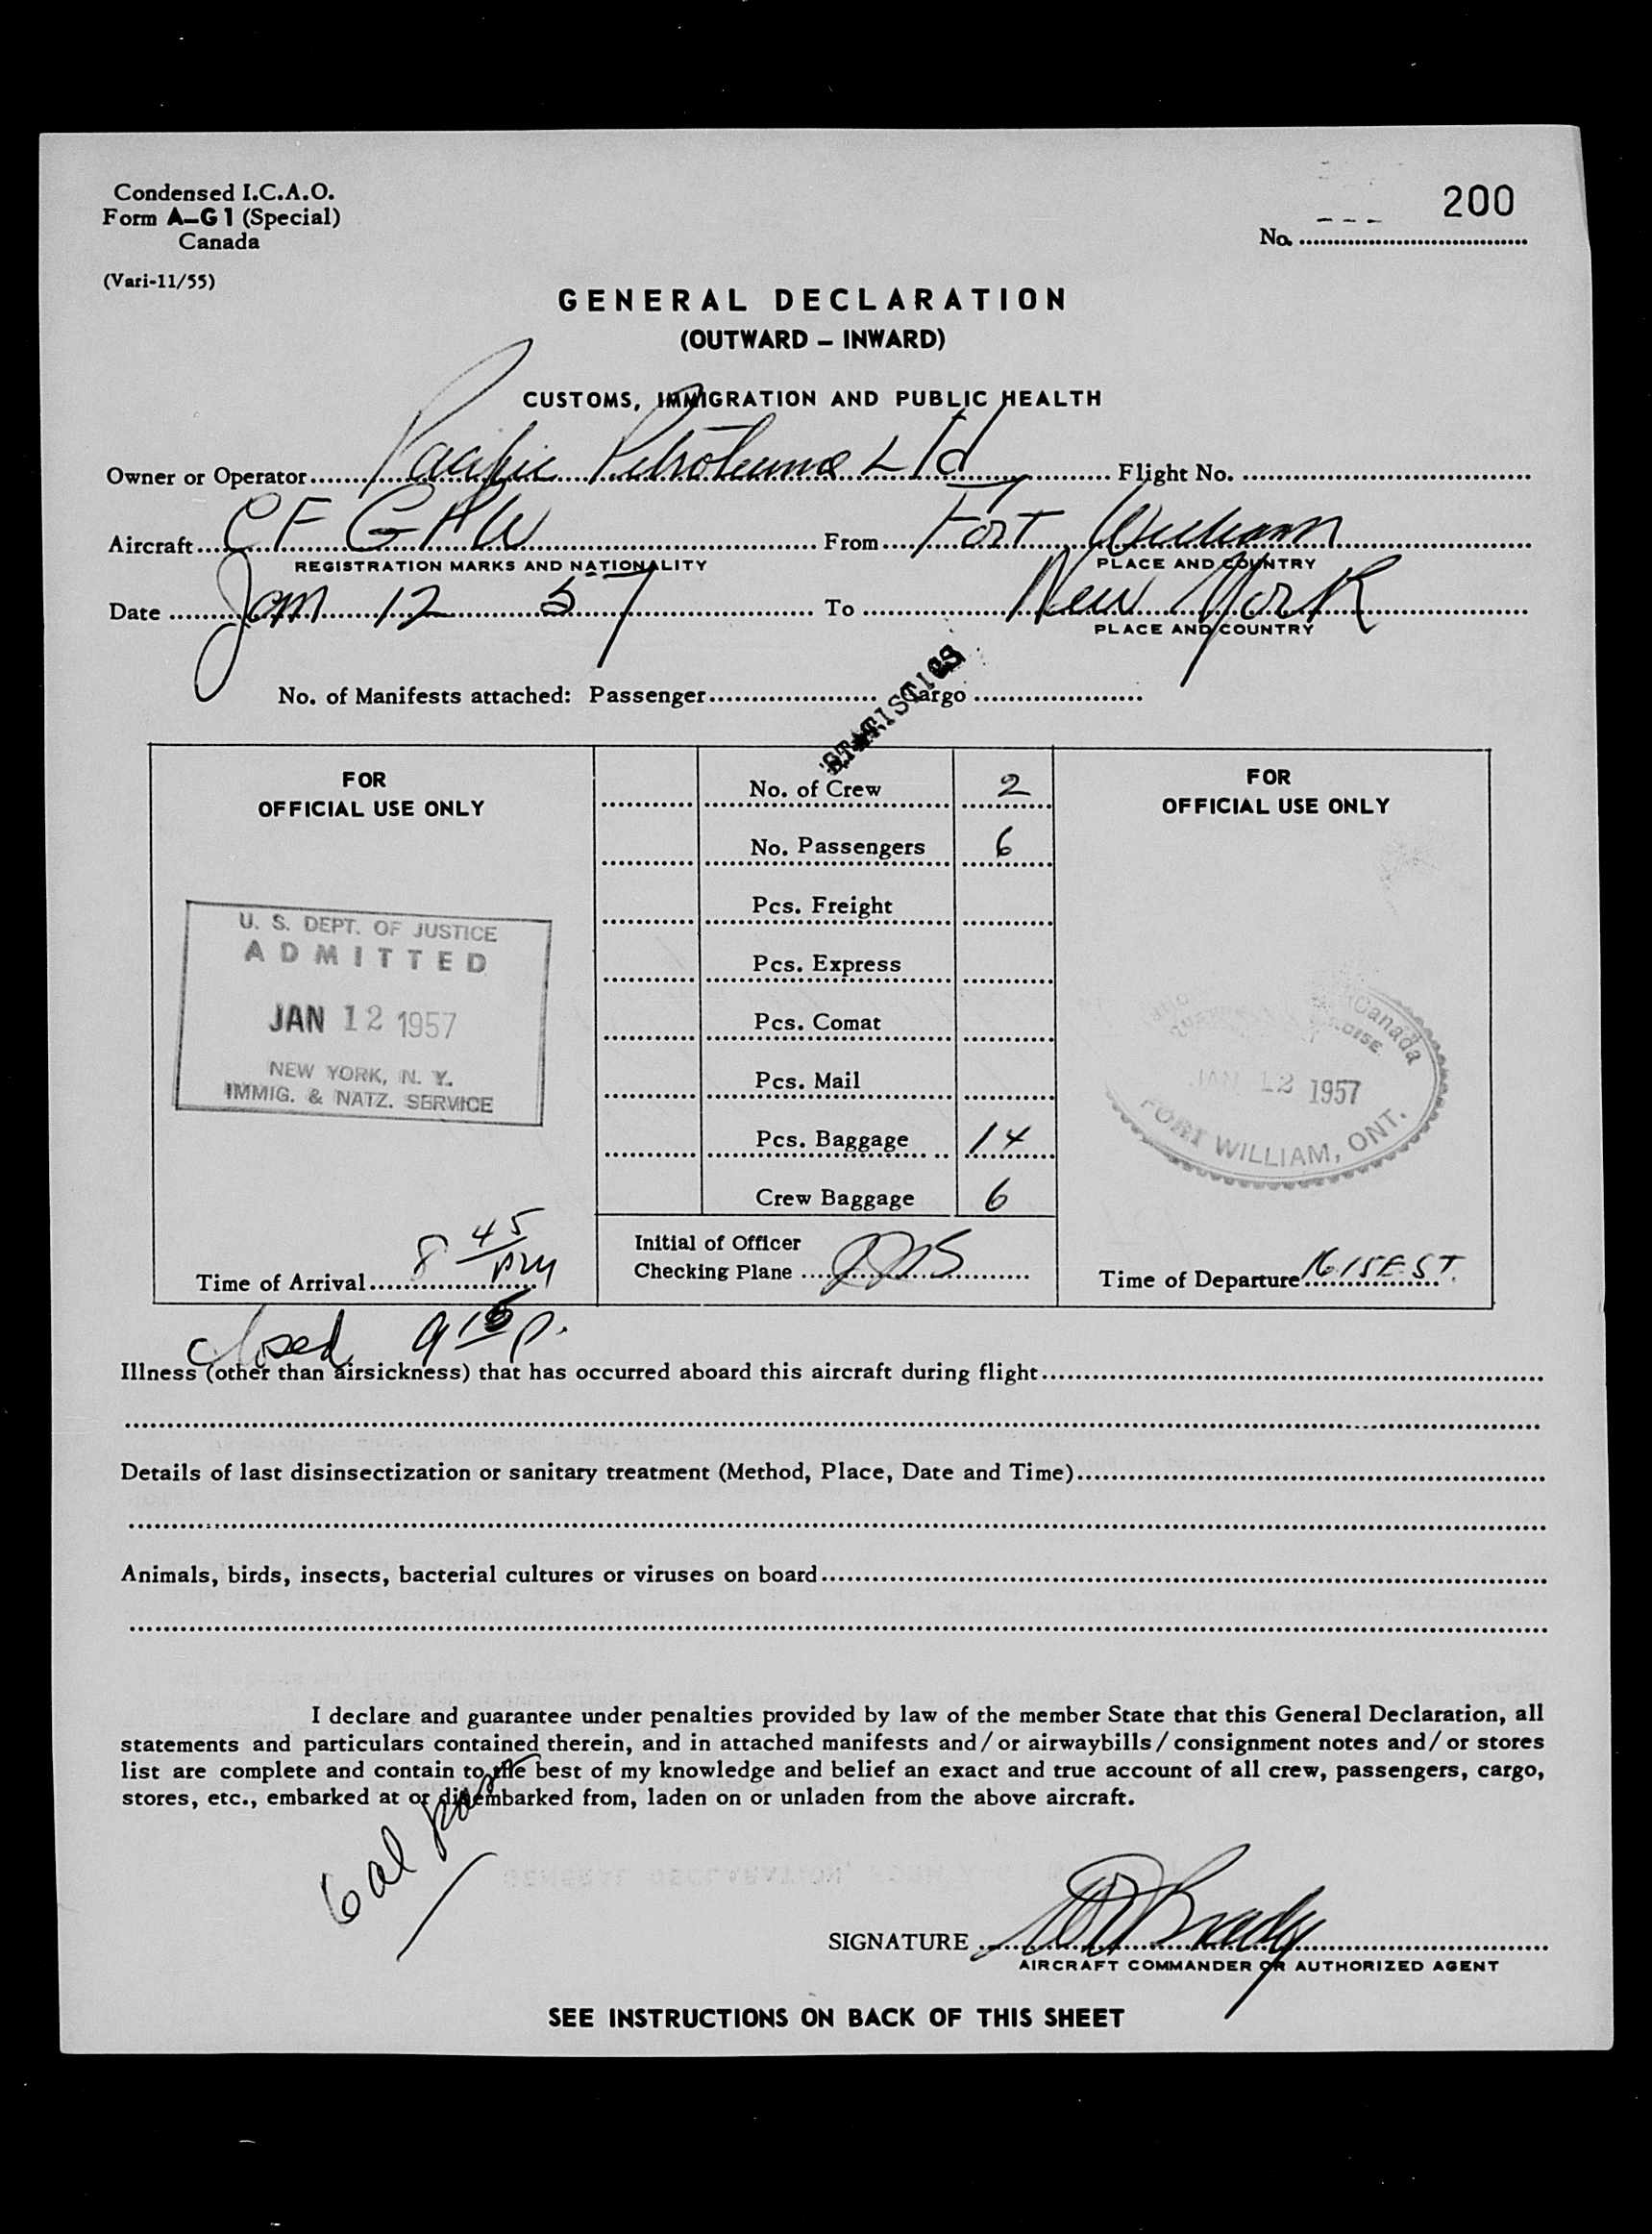 Condensed I.C.A.O.
Form A-G1 (Special)
Canada
(Vari-11/55)
200
No.
GENERAL DECLARATION
(OUTWARD - INWARD)
CUSTOMS, IMMIGRATION AND PUBLIC HEALTH
Owner or Operator Pacific Petroleums Ltd Flight No.
Aircraft CF GHW From Fort William
REGISTRATION MARKS AND NATIONALITY PLACE AND COUNTRY
Date Jan 12 57 To New York
PLACE AND COUNTRY
STATISTICS
No. of Manifests attached: Passenger Cargo
FOR
OFFICIAL USE ONLY
U. S. DEPT. OF JUSTICE
ADMITTED
JAN 12 1957
NEW YORK, N. Y.
IMMIG. & NATZ. SERVICE
Time of Arrival 8 45 PM
No. of Crew 2
No. Passengers 6
Pcs. Freight
Pcs. Express
Pcs. Comat
Pcs. Mail
Pcs. Baggage 14
Crew Baggage 6
Initial of Officer
Checking Plane
FOR
OFFICIAL USE ONLY
Canada
JAN 12 1957
FORT WILLIAM, ONT.
Time of Departure 1615 E.S.T.
closed 9 15 p.
Illness (other than airsickness) that has occurred aboard this aircraft during flight
Details of last disinsectization or sanitary treatment (Method, Place, Date and Time)
Animals, birds, insects, bacterial cultures or viruses on board
I declare and guarantee under penalties provided by law of the member State that this General Declaration, all
statements and particulars contained therein, and in attached manifests and/or airwaybills/consignment notes and/or stores
list are complete and contain to the best of my knowledge and belief an exact and true account of all crew, passengers, cargo,
stores, etc., embarked at or disembarked from, laden on or unladen from the above aircraft.
6 al
SIGNATURE Brady
AIRCRAFT COMMANDER OR AUTHORIZED AGENT
SEE INSTRUCTIONS ON BACK OF THIS SHEET